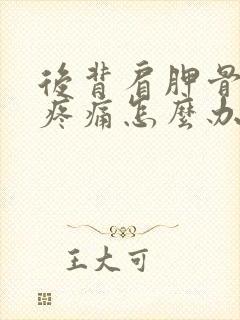 後背肩胛骨
疼痛怎麼办
王大可